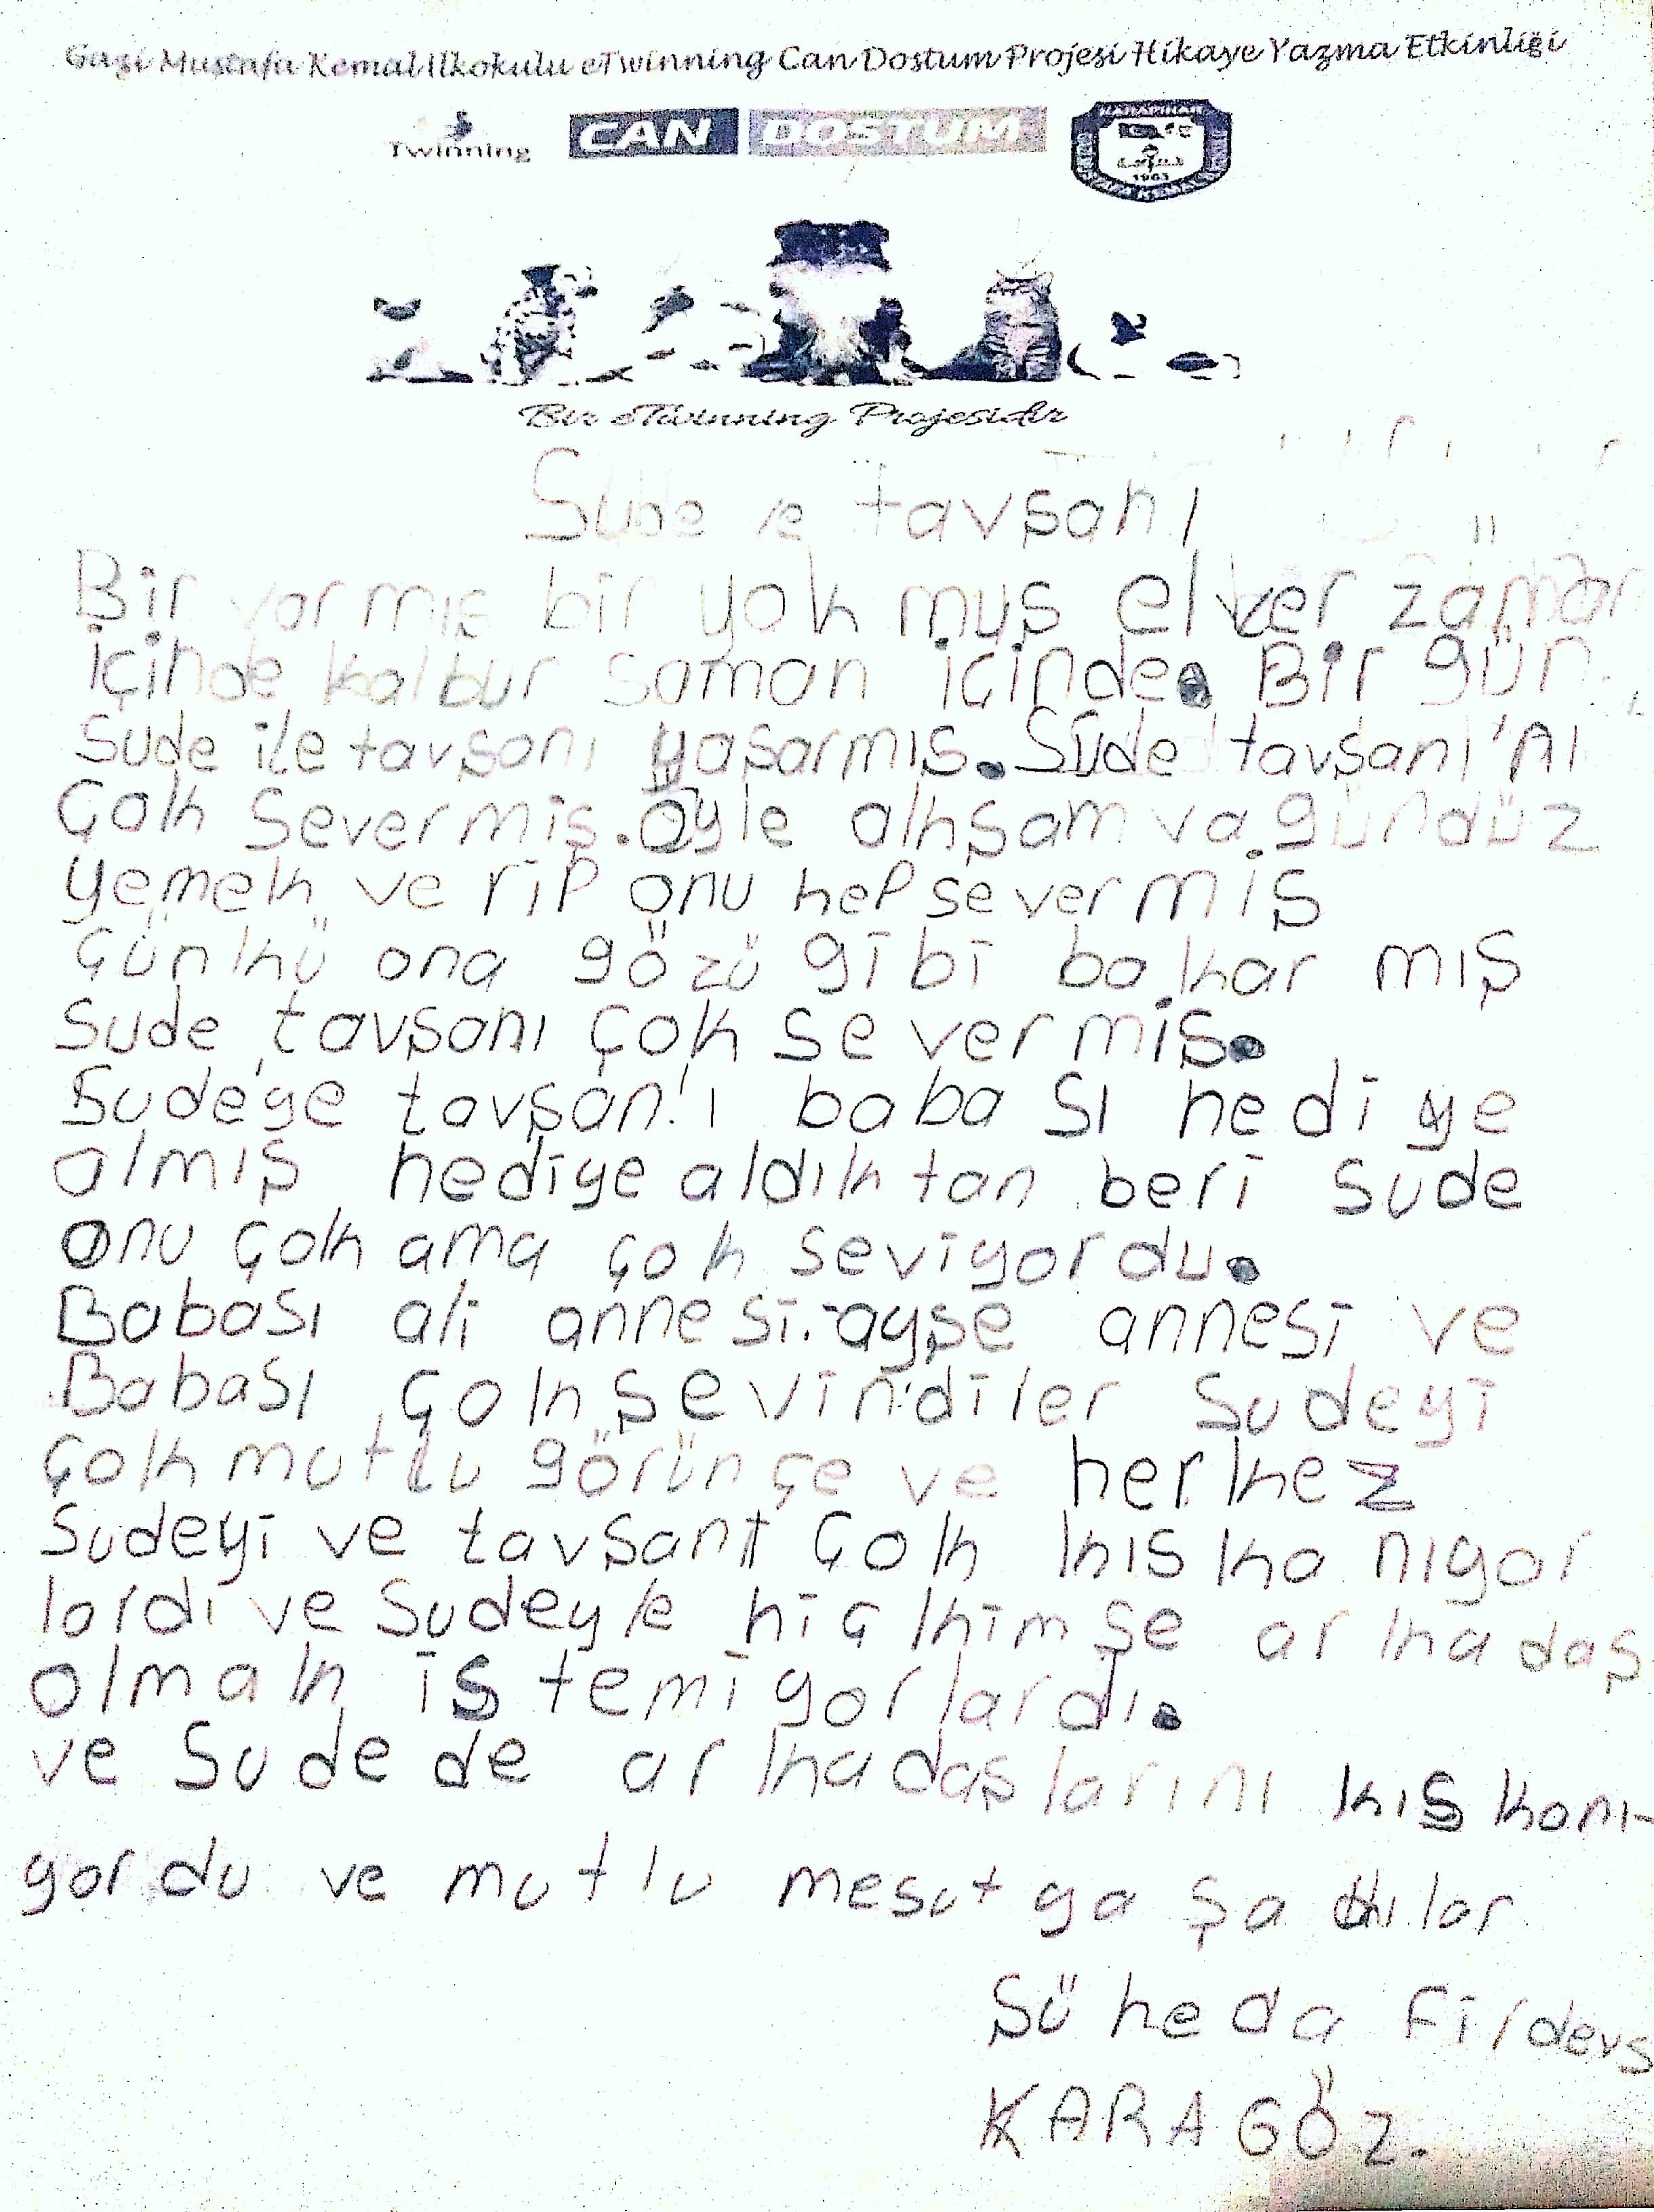 Gazi Mustafa Kemal İlkokulu eTwinning Can Dostum Projesi Hikaye Yazma Etkinliği
Twinning CAN DOSTUM
1963
Bir eTwinning Projesidir
Sude le tavşanı
Bir varmış bir yok muş elver zaman
içinde kalbur saman içinde. Bir gün
Sude ile tavşanı yaşarmış. Sude tavşanı'Aı
Çok Severmiş. öyle akşam va gündüz
yemek ve rip onu hep se ver miş
Çünkü ona gözü gibi ba kar mış
Sude tavşanı çok se ver miş.
Sude'ye tavşan'ı baba sı hedi ye
almış hediye aldık tan beri Sude
onu çok ama çok seviyor du.
Babası ali anne si ayşe annesi ve
Babası çok şevindiler Sudeyi
çok mutlu görünçe ve herkez
Sudeyi ve tavşanı çok kıs ka nıyor
lardı ve Sudeyle hiç kimşe ar kadaş
olmak is temiyorlardı.
ve Sude de ar kadaşlarını kıs kanı-
yor du ve mutlu mesut ya şa dılar
Şü heda Firdevs
KARAGÖZ.